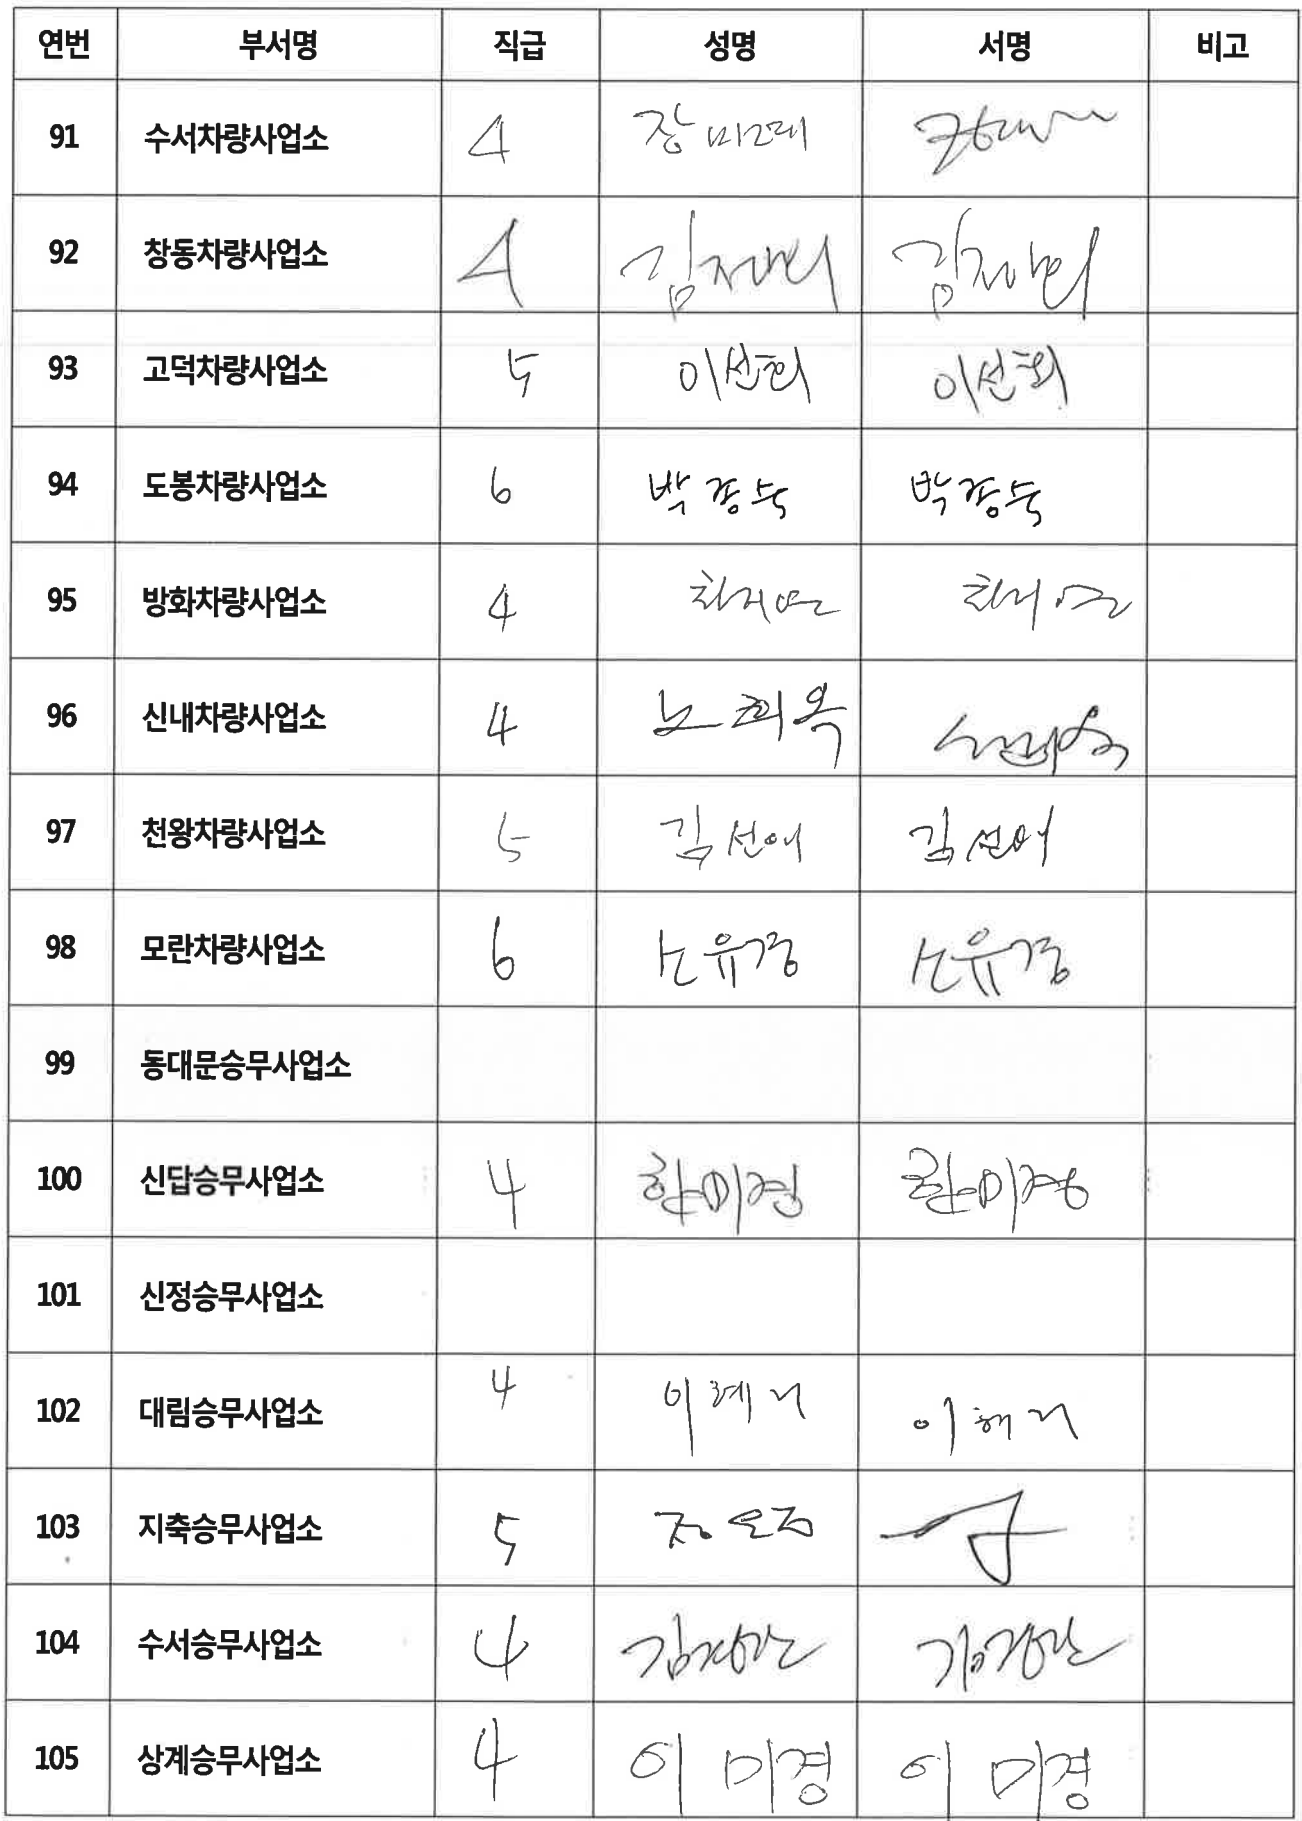 연번 부서명 직급 성명 서명 비고
91 수서차량사업소 4 장미대
92 창동차량사업소 4
93 고덕차량사업소 5 이선희 이선희
94 도봉차량사업소 6 박경숙 박경숙
95 방화차량사업소 4
96 신내차량사업소 4 노희옥
97 천왕차량사업소 5 김선애 김선애
98 모란차량사업소 6 손유경 손유경
99 동대문승무사업소
100 신답승무사업소 4 함미경 함미경
101 신정승무사업소
102 대림승무사업소 4
103 지축승무사업소 5
104 수서승무사업소 4 김경란 김경란
105 상계승무사업소 4 이미경 이미경